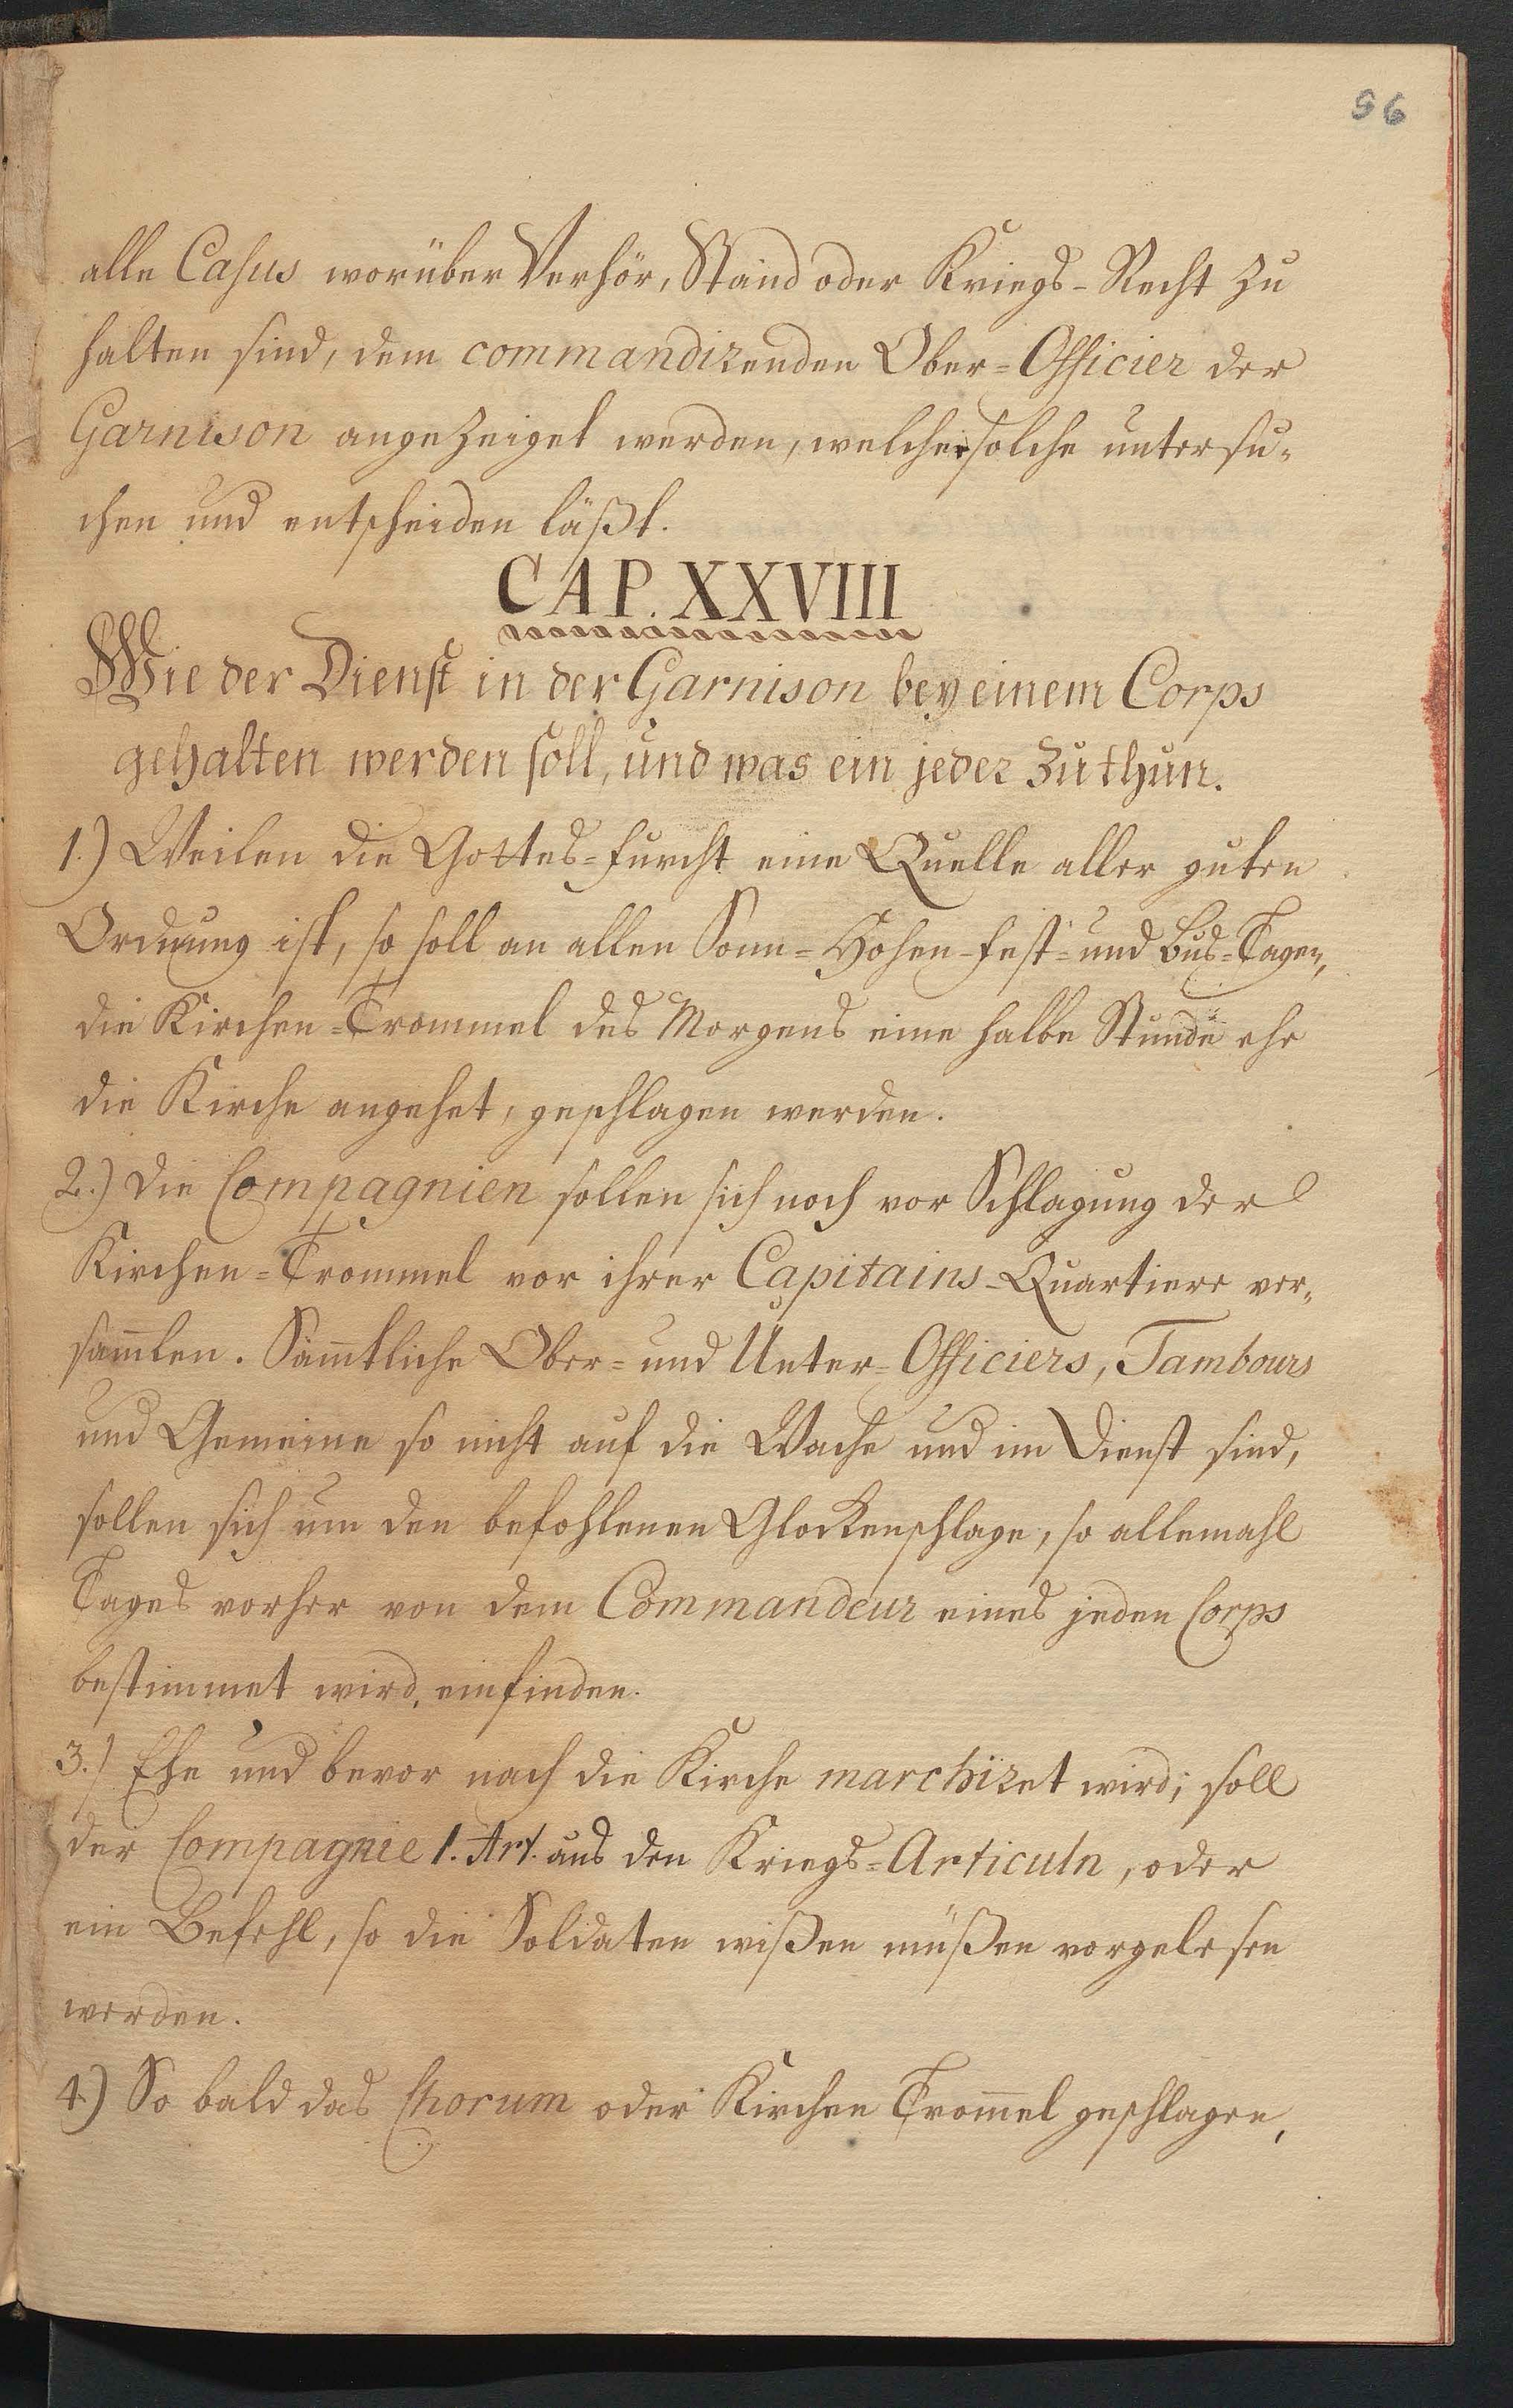 56
alle Casus worüber Verhör, Stand oder Kriegs-Recht zu
halten sind, dem commandirenden Ober=Officier der
Garnison angezeiget werden, welcher solche untersu¬
chen und entscheiden läßt.
CAP. XXVIII
Wie der Dienst in der Garnison bey einem Corps
gehalten werden soll, und was ein jeder zu thun.
1.) Weilen die Gottes=furcht eine Quelle aller guten
Ordnung ist, so soll an allen Sonn=Hohen-fest=und Bus=Tagen,
die Kirchen=Trommel des Morgens eine halbe Stunde ehe
die Kirche angehet, geschlagen werden.
2.) Die Compagnien sollen sich noch vor Schlagung der
Kirchen=Trommel vor ihrer Capitains-Quartiere ver¬
samlen. Sämtliche Ober=und Unter=Officiers, Tambours
und Gemeine so nicht auf die Wache und im Dienst sind,
sollen sich um den befohlenen Glockenschlage, so allemahl
Tages vorher von dem Commandeur eines jeden Corps
bestimmet wird, einfinden.
3.) Ehe und bevor nach die Kirche marchiret wird; soll
der Compagnie 1. Art. aus den Kriegs=Articuln, oder
ein Befehl, so die Soldaten wißen müßen vorgelesen
werden.
4.) So bald das Chorum oder Kirchen Trommel geschlagen,